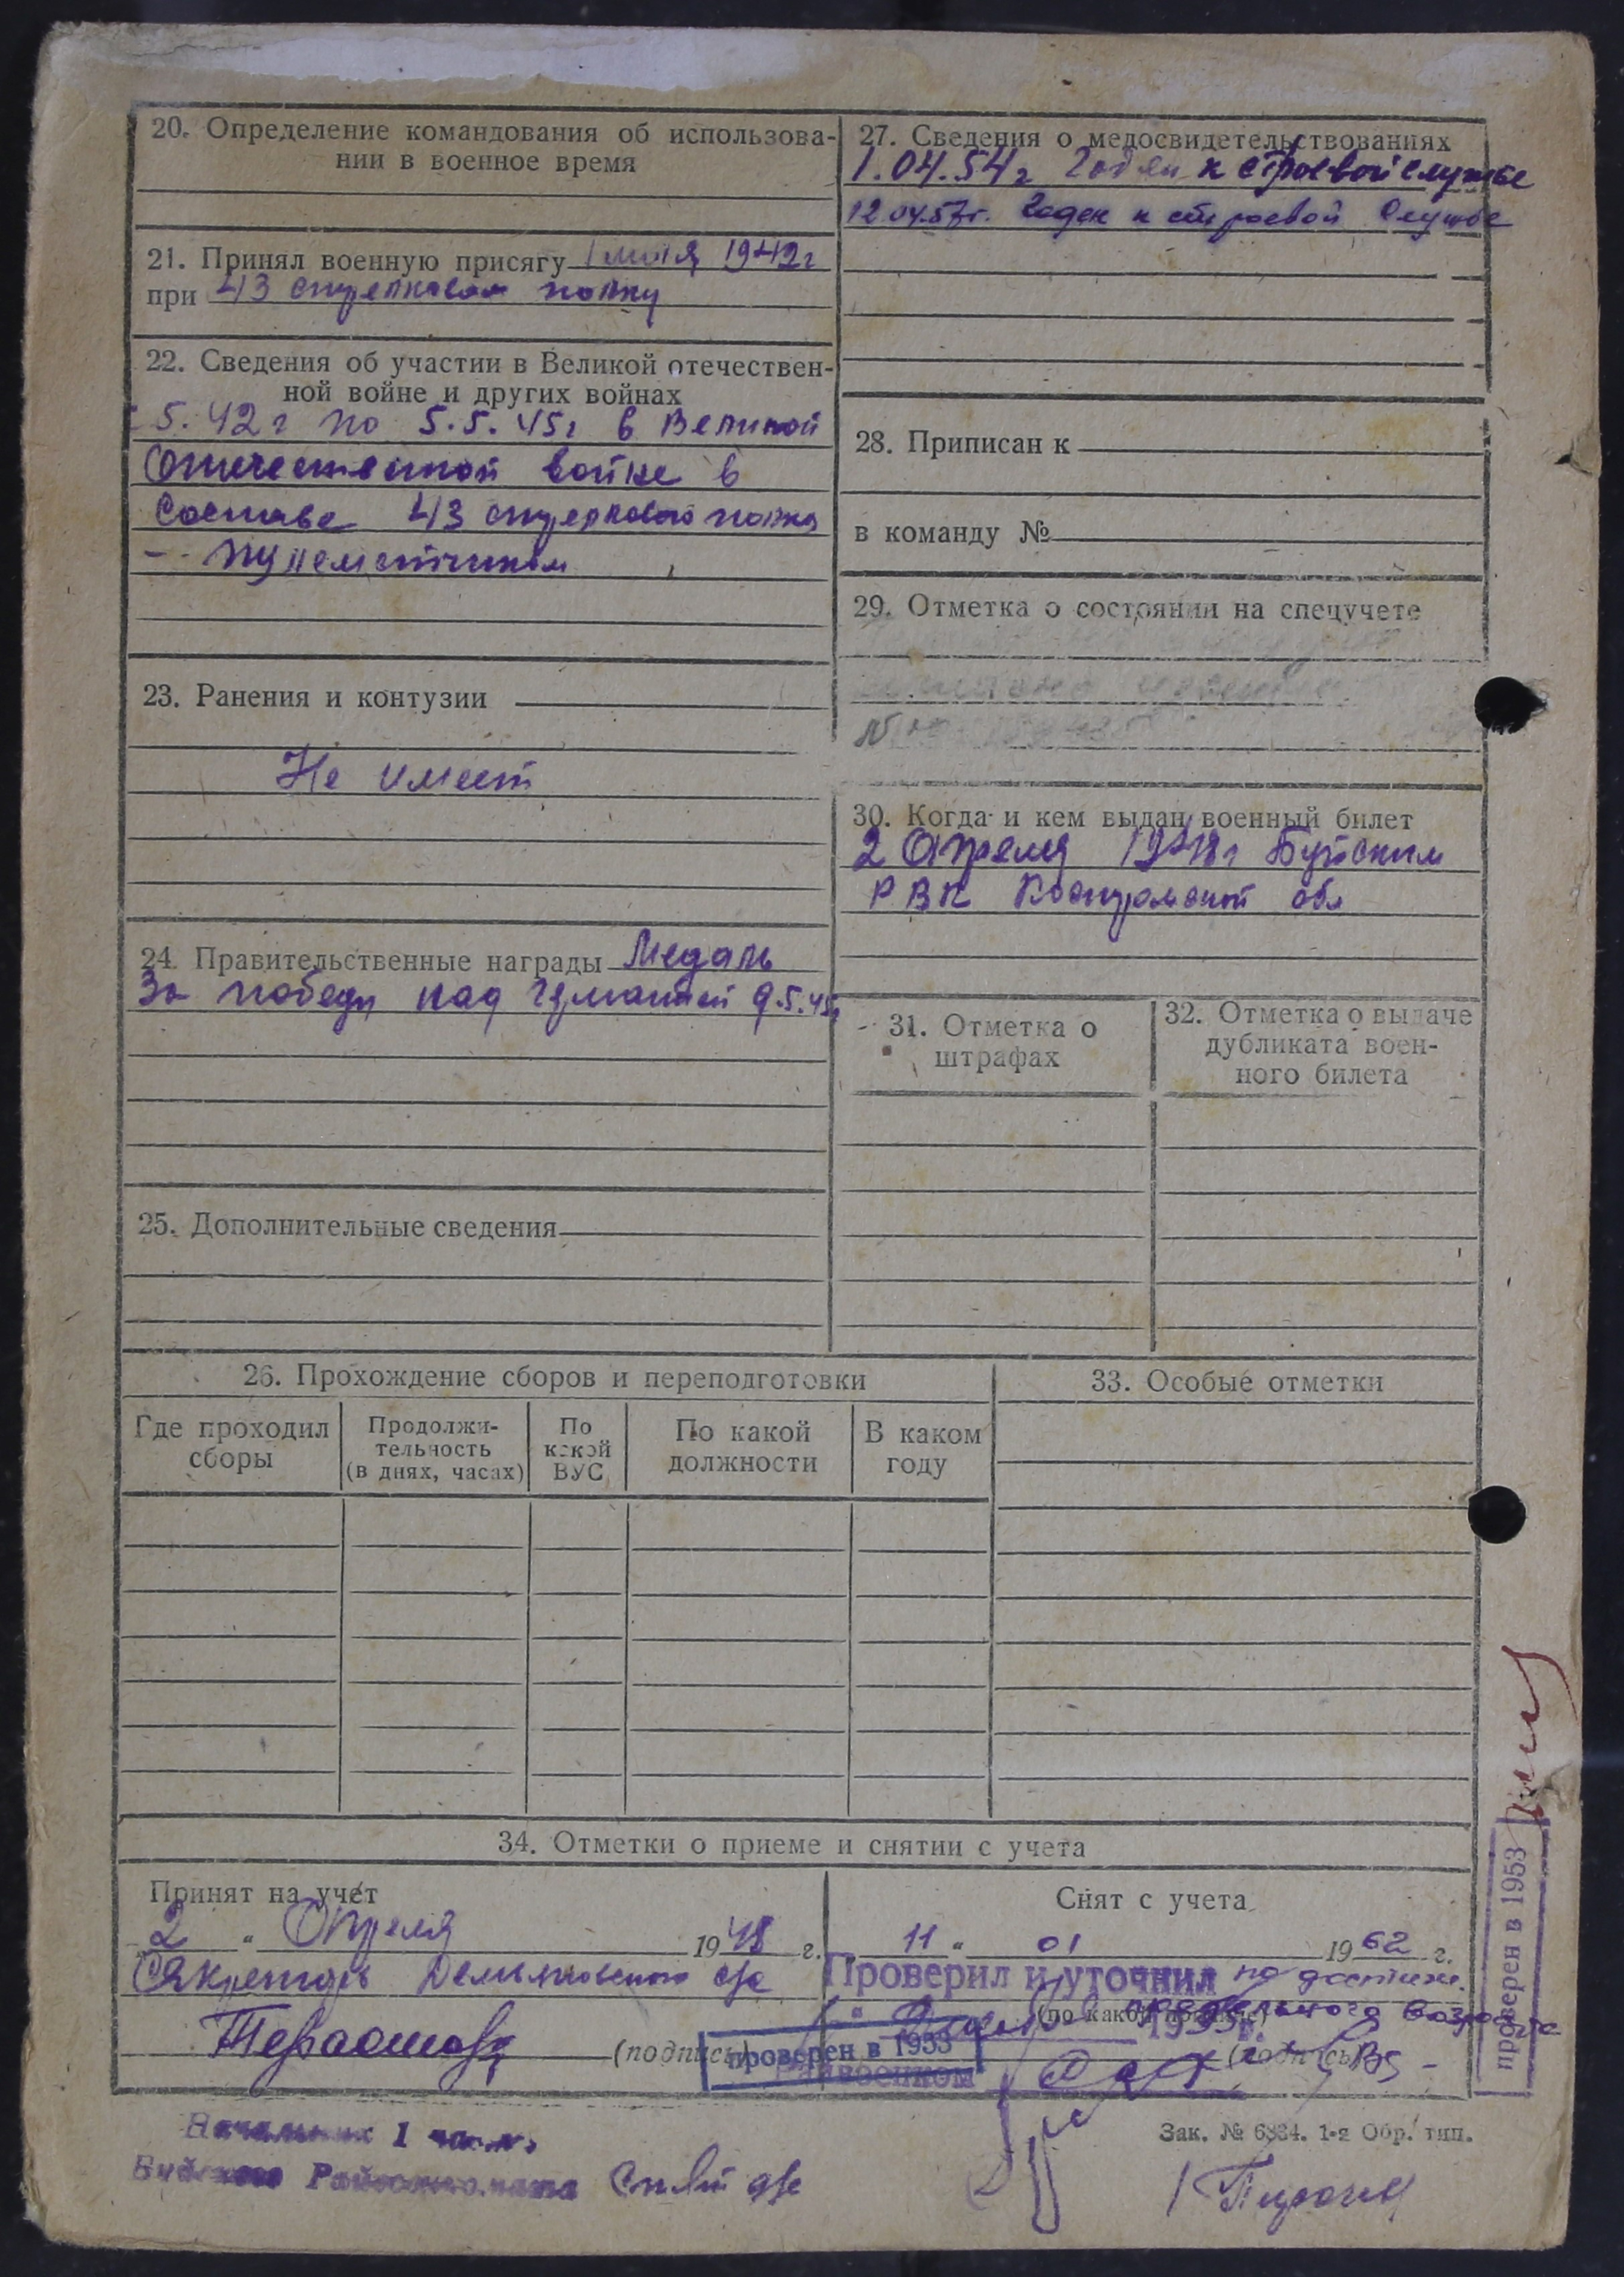 20. Определение командования об использова-
нии в военное время
21. Принял военную присягу 1942г
при 43 стрелковом полку
22. Сведения об участии в Великой отечествен-
ной войне и других войнах
5.42г по 5.5.45г в Великой
Отечественной войне в
составе 43 стрелкового полка
- пулеметчиком
23. Ранения и контузии
Не имеет
24. Правительственные награды Медаль
За победу над Германией 9.5.45г
25. Дополнительные сведения
27. Сведения о медосвидетельствованиях
1.04.54г Годен к строевой службе
12.04.57г. Годен к строевой службе
28. Приписан к
в команду №
29. Отметка о состоянии на спецучете
30. Когда и кем выдан военный билет
2 Апреля 1948г Буйским
РВК Костромской обл
31. Отметка о
штрафах
32. Отметка о выдаче
дубликата воен-
ного билета
26. Прохождение сборов и переподготовки
Где проходил
сборы
Продолжи-
тельность
(в днях, часах)
По
какой
ВУС
По какой
должности
В каком
году
33. Особые отметки
34. Отметки о приеме и снятии с учета
Принят на учет
2 " Апреля 1948 г.
Секретарь с/с
(подпись)
Снят с учета
11 " 01 1962 г.
Проверил и уточнил по достиж.
(по какой причине) предельного возраста
(подпись)
проверен в 1953
Райвоенком
проверен в 1953
Начальник 1 части
Буйского Райвоенкомата
Зак. № 6834. 1-я Обр. тип.